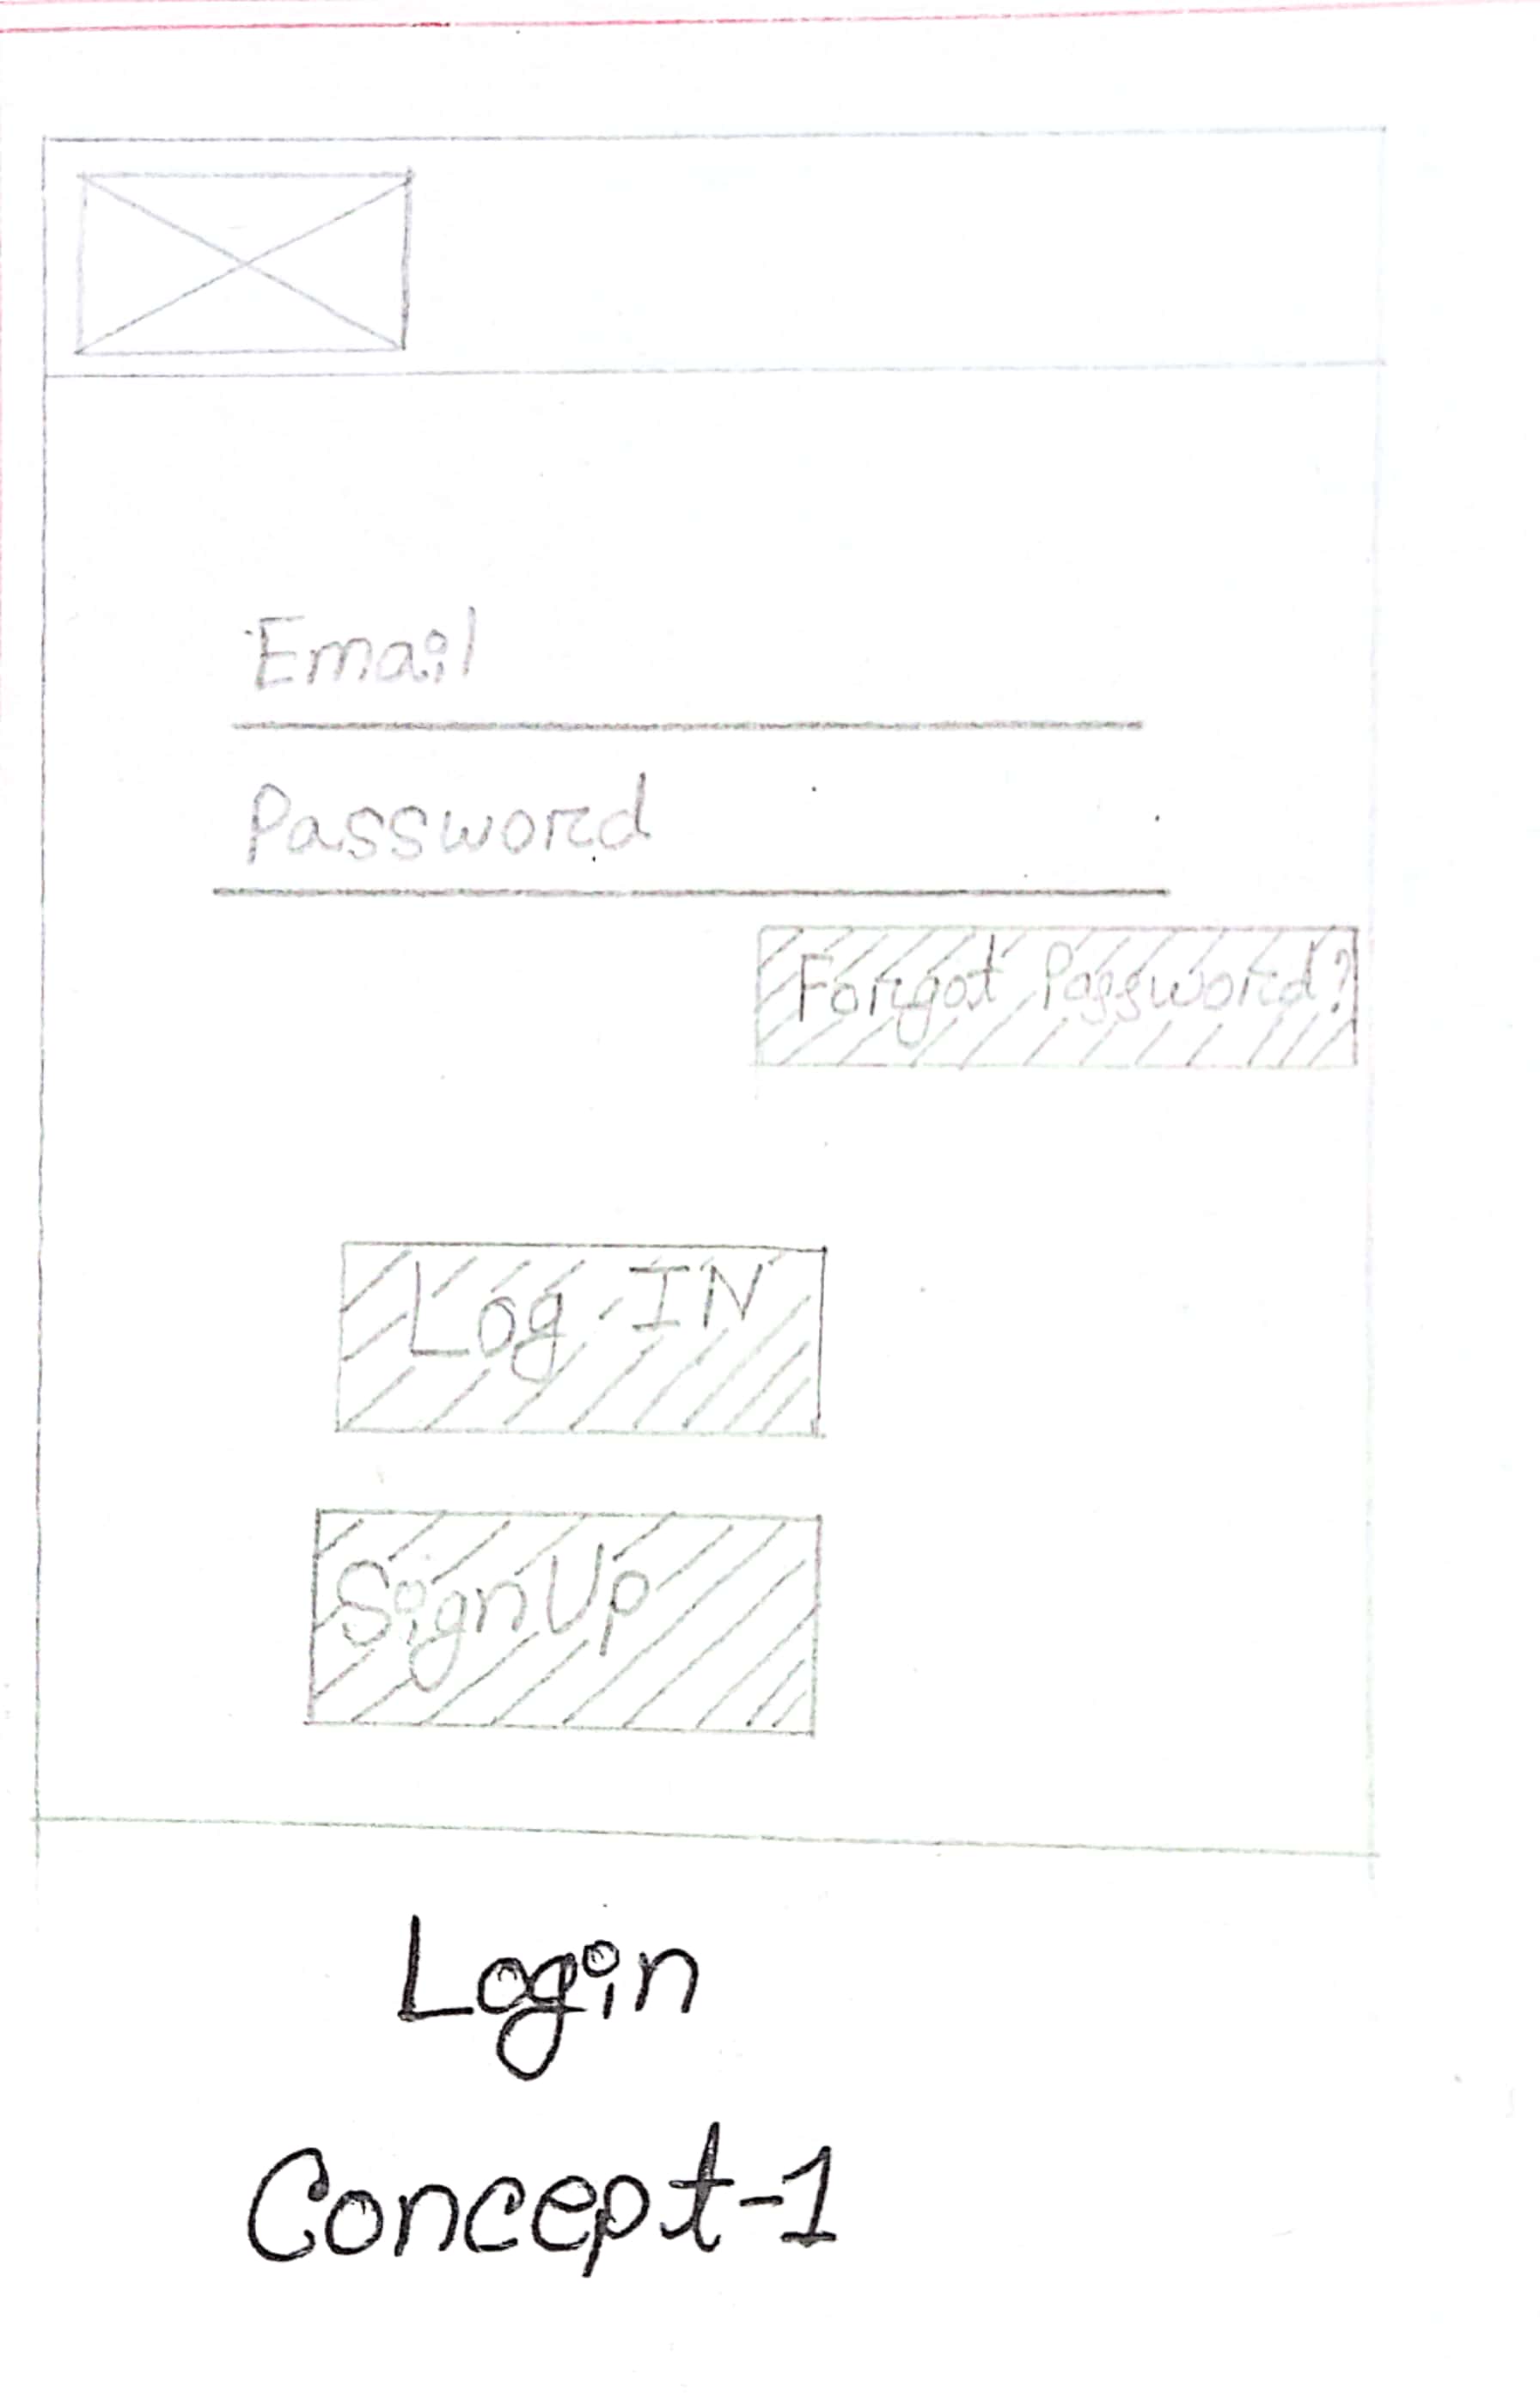 Email
Password
Forgot Password?
Log IN
SignUp
Login
Concept-1